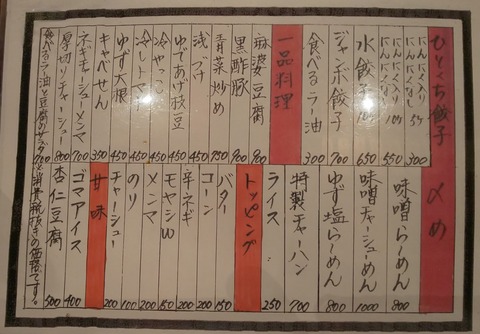 ひとくち餃子
にんにく入り 5コ 300
にんにくなし 5コ
にんにく入り 10コ 550
水餃子 10コ 650
ジャンボ餃子 700
食べるラー油 300
一品料理
麻婆豆腐 900
黒酢豚 900
青菜炒め 750
浅づけ 450
ゆであげ枝豆 450
冷やっこ 450
冷しトマト 450
ゆず大根 450
キャベせん 350
ネギチャーシューメンマ 700
厚切りチャーシュー 800
食べるラー油と豆腐のサラダ 700
〆め
味噌らーめん 800
味噌チャーシューめん 1000
ゆず塩らーめん 800
特製チャーハン 700
ライス 250
トッピング
バター 150
コーン 200
辛ネギ 200
モヤシW 150
メンマ 200
のり 100
チャーシュー 200
甘味
ゴマアイス 400
杏仁豆腐 500
※消費税抜きの価格です。